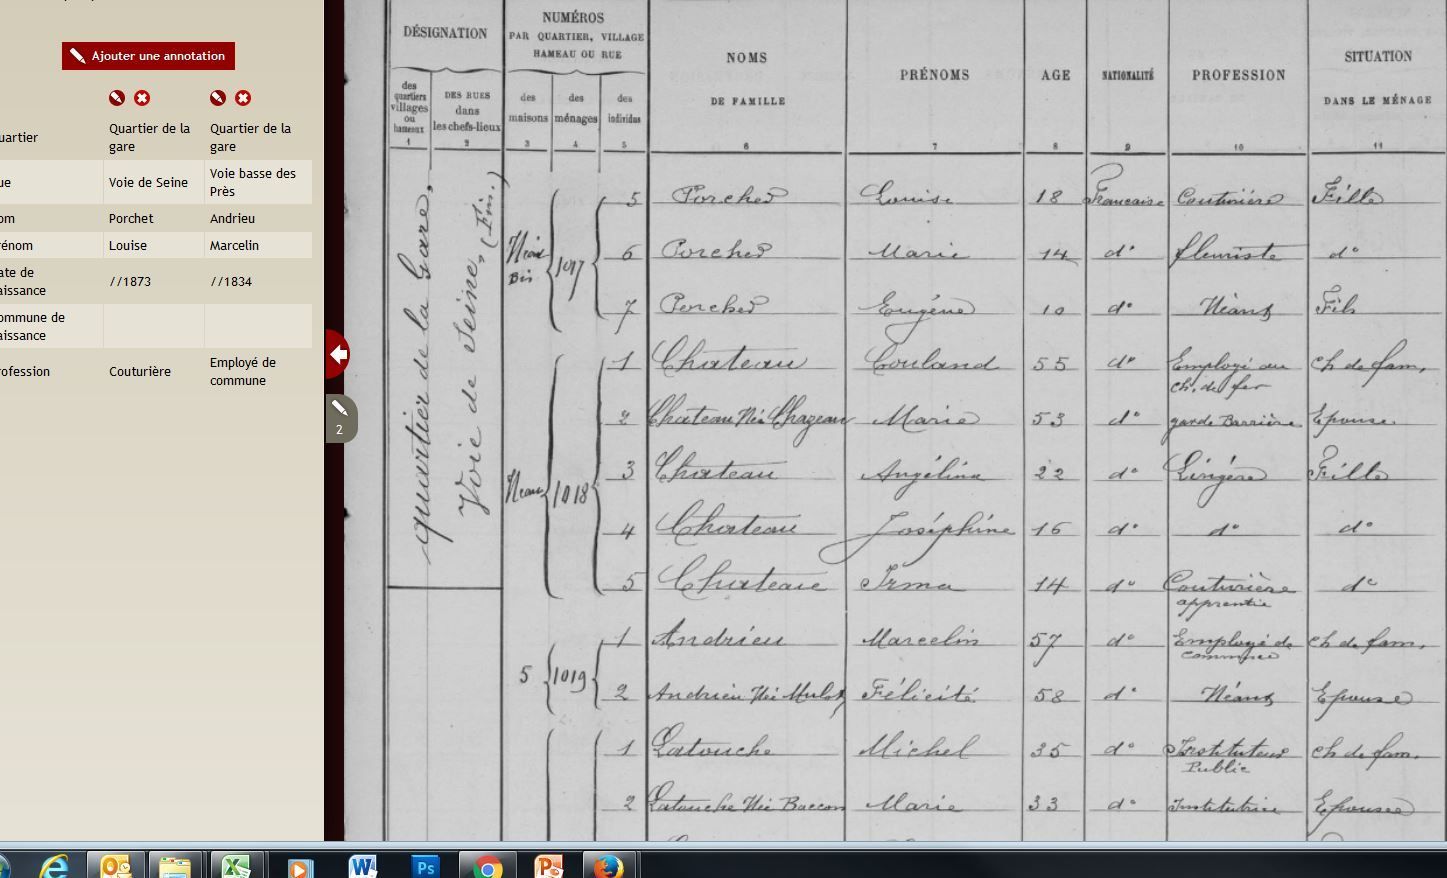 Ajouter une annotation
uartier Quartier de la gare Quartier de la gare
ue Voie de Seine Voie basse des Près
om Porchet Andrieu
rénom Louise Marcelin
ate de aissance //1873 //1834
ommune de aissance
rofession Couturière Employé de commune
2
DÉSIGNATION
des quartiers villages ou hameaux
DES RUES dans les chefs-lieux
NUMÉROS
PAR QUARTIER, VILLAGE
HAMEAU OU RUE
des maisons
des ménages
des individus
NOMS
DE FAMILLE
PRÉNOMS
AGE
NATIONALITÉ
PROFESSION
SITUATION
DANS LE MÉNAGE
1 2 3 4 5 6 7 8 9 10 11
quartier de la Gare,
Voie de Seine, (Fin.)
5 Porchet Louise 18 Française Couturière Fille
Bis 1017 6 Porchet Marie 14 d° fleuriste d°
7 Porchet Eugène 10 d° Néant Fils
1 Chateau Couland 55 d° Employé au ch. de fer ch de fam.
2 Chateau Née Chazeau Marie 53 d° garde Barrière Epouse
Néant 1018 3 Chateau Angélina 22 d° Lingère Fille
4 Chateau Joséphine 16 d° d° d°
5 Chateau Irma 14 d° Couturière apprentie d°
1 Andrieu Marcelin 57 d° Employé de commerce ch de fam.
5 1019 2 Andrieu Née Mulot Félicité 58 d° Néant Epouse
1 Latouche Michel 35 d° Instituteur Public ch de fam.
2 Latouche Née Baccon Marie 33 d° Institutrice Epouse